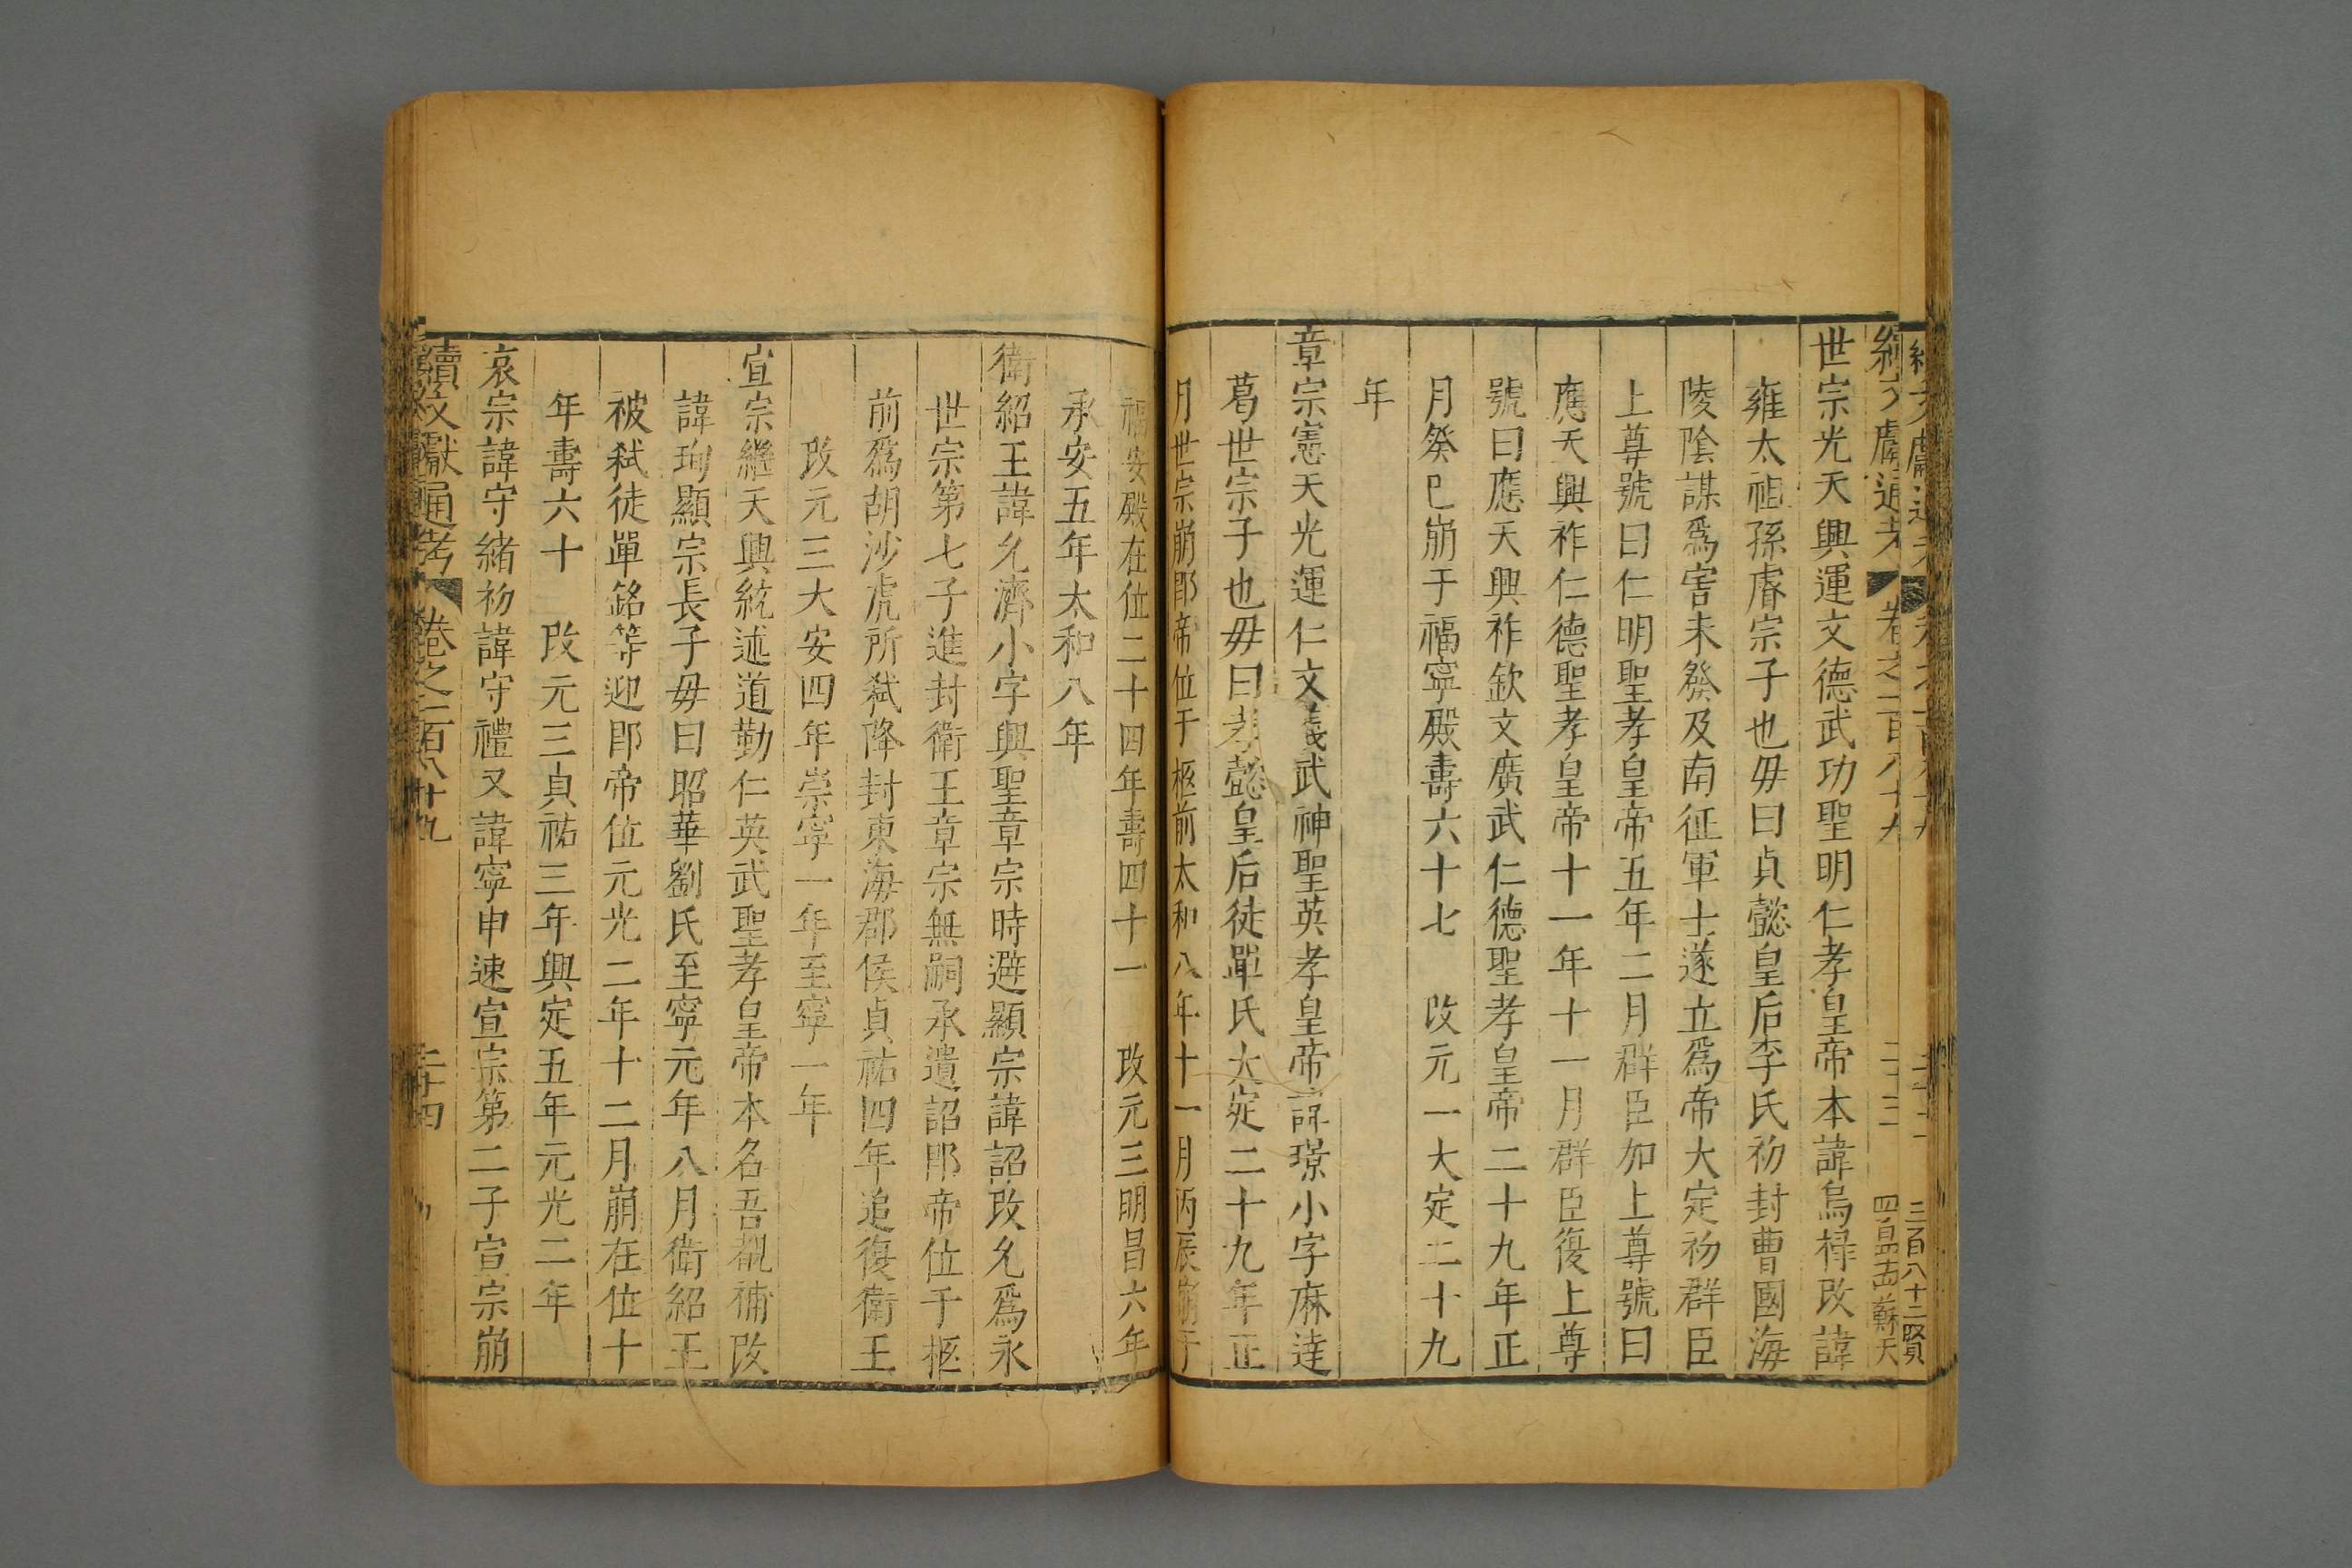 世宗光天興運文德武功聖明仁孝皇帝本諱烏祿改諱
雍太祖孫睿宗子也毋曰貞懿皇后李氏初封曹國海
陵陰謀爲害未發及南征軍士遂立爲帝大定初群臣
上尊號曰仁明聖孝皇帝五年二月群臣加上尊號曰
應天興祚仁德聖孝皇帝十一年十一月群臣復上尊
號曰應天興祚欽文廣武仁德聖孝皇帝二十九年正
月癸巳崩于福寧殿壽六十七 改元一大定二十九
年
章宗憲天光運仁文義武神聖英孝皇帝諱璟小字麻達
葛世宗子也毋曰孝懿皇后徒單氏大定二十九年正
月世宗崩即帝位于柩前太和八年十一月丙辰崩于
福安殿在位二十四年壽四十一 改元三明昌六年
承安五年太和八年
衛紹王諱允濟小字興聖章宗時避顯宗諱詔改允爲永
世宗第七子進封衛王章宗無嗣承遺詔即帝位于柩
前爲胡沙虎所弒降封東海郡侯貞祐四年追復衛王
改元三大安四年崇寧一年至寧一年
宣宗繼天興統述道勤仁英武聖孝皇帝本名吾覩補改
諱珣顯宗長子毋曰昭華劉氏至寧元年八月衛紹王
被弒徒單銘等迎即帝位元光二年十二月崩在位十
年壽六十 改元三貞祐三年興定五年元光二年
哀宗諱守緒初諱守禮又諱寧甲速宣宗第二子宣宗崩
續文獻通考 卷之一百八十九 二十四